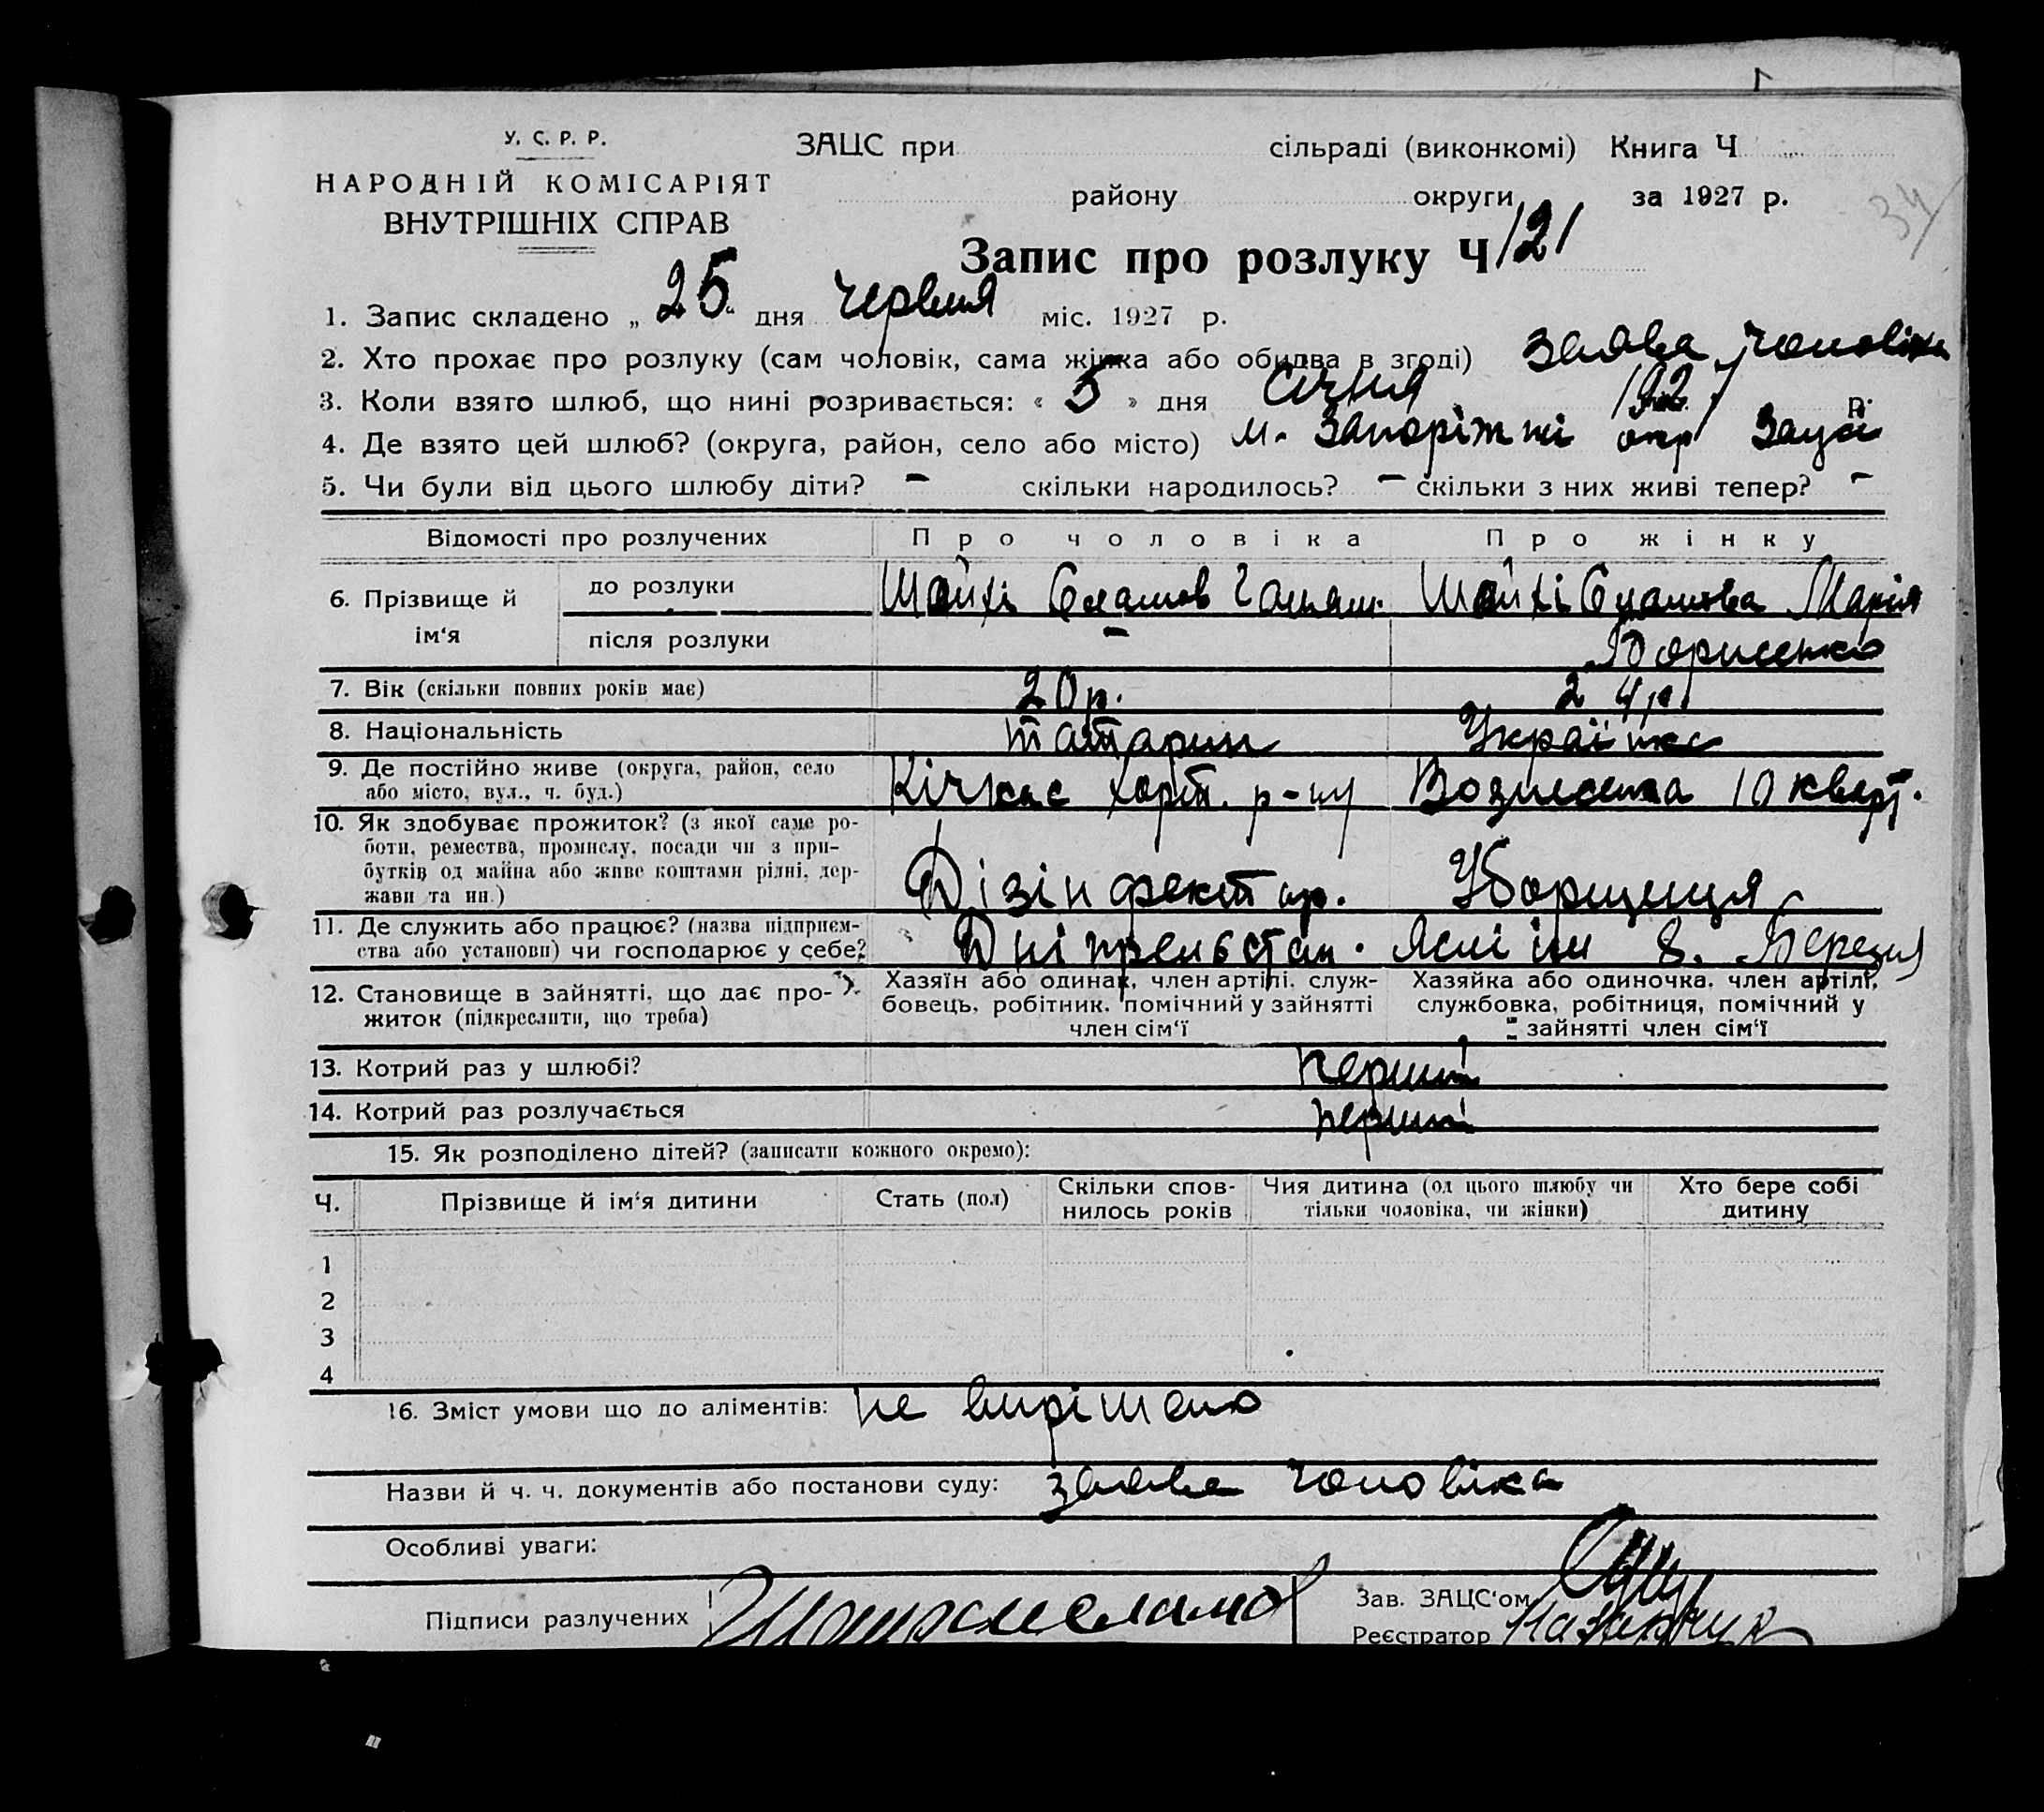 У. С. Р. Р.
НАРОДНІЙ КОМІСАРІЯТ
ВНУТРІШНІХ СПРАВ
ЗАЦС при сільраді (виконкомі) Книга Ч
району округи за 1927 р.
34
Запис про розлуку Ч 121
1. Запис складено „ 25 “ дня червня міс. 1927 р.
2. Хто прохає про розлуку (сам чоловік, сама жінка або обидва в згоді) заява чоловіка
3. Коли взято шлюб, що нині розривається: « 5 » дня січня 1927 р.
4. Де взято цей шлюб? (округа, район, село або місто) м. Запоріжжі окр Зацсі
5. Чи були від цього шлюбу діти? – скільки народилось? – скільки з них живі тепер? –
Відомості про розлучених Про чоловіка Про жінку
6. Прізвище й ім‘я
до розлуки Шайхі Сламов Шайхі Сламова Марія
після розлуки – Борисенко
7. Вік (скільки повних років має) 20 р. 24 р.
8. Національність татарин Українка
9. Де постійно живе (округа, район, село або місто, вул., ч. буд.) Кічкас Хорт. р-ну Вознесенка 10 кварт.
10. Як здобуває прожиток? (з якої саме ро-
боти, ремества, промислу, посади чи з при-
бутків од майна або живе коштами рідні, дер-
жави та ин.) Дізінфектор. Уборщиця
11. Де служить або працює? (назва підприєм-
ства або установи) чи господарює у себе? Дніпрельстан. Яслі ім 8. Березня
12. Становище в зайнятті, що дає про-
житок (підкреслити, що треба)
Хазяїн або одинак, член артілі, служ-
бовець, робітник, помічний у зайнятті
член сім‘ї
Хазяйка або одиночка, член артілі,
службовка, робітниця, помічний у
зайнятті член сім‘ї
13. Котрий раз у шлюбі? перший
14. Котрий раз розлучається перший
15. Як розподілено дітей? (записати кожного окремо):
Ч. Прізвище й ім‘я дитини Стать (пол) Скільки спов-
нилось років Чия дитина (од цього шлюбу чи
тільки чоловіка, чи жінки) Хто бере собі
дитину
1
2
3
4
16. Зміст умови що до аліментів: не вирішено
Назви й ч. ч. документів або постанови суду: заява чоловіка
Особливі уваги:
Підписи разлучених
Зав. ЗАЦС‘ом
Реєстратор